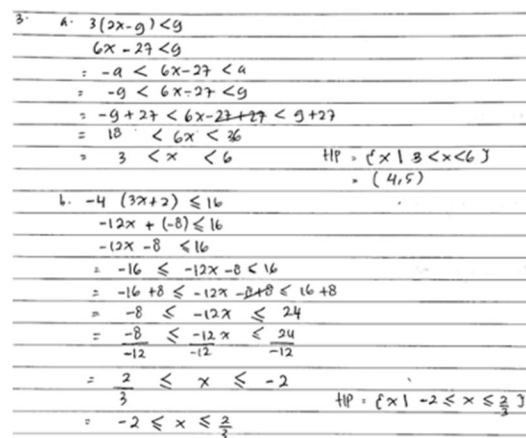 3. a. 3(2x-9) < 9
6x - 27 < 9
= -a < 6x-27 < a
= -9 < 6x-27 < 9
= -9 + 27 < 6x-27+27 < 9+27
= 18 < 6x < 36
= 3 < x < 6 HP = {x | 3 < x < 6}
= (4,5)
b. -4 (3x+2) ≤ 16
-12x + (-8) ≤ 16
-12x - 8 ≤ 16
= -16 ≤ -12x - 8 ≤ 16
= -16 + 8 ≤ -12x - 8+8 ≤ 16 + 8
= -8 ≤ -12x ≤ 24
= -8/-12 ≤ -12x/-12 ≤ 24/-12
= 2/3 ≤ x ≤ -2
HP = {x | -2 ≤ x ≤ 2/3}
= -2 ≤ x ≤ 2/3